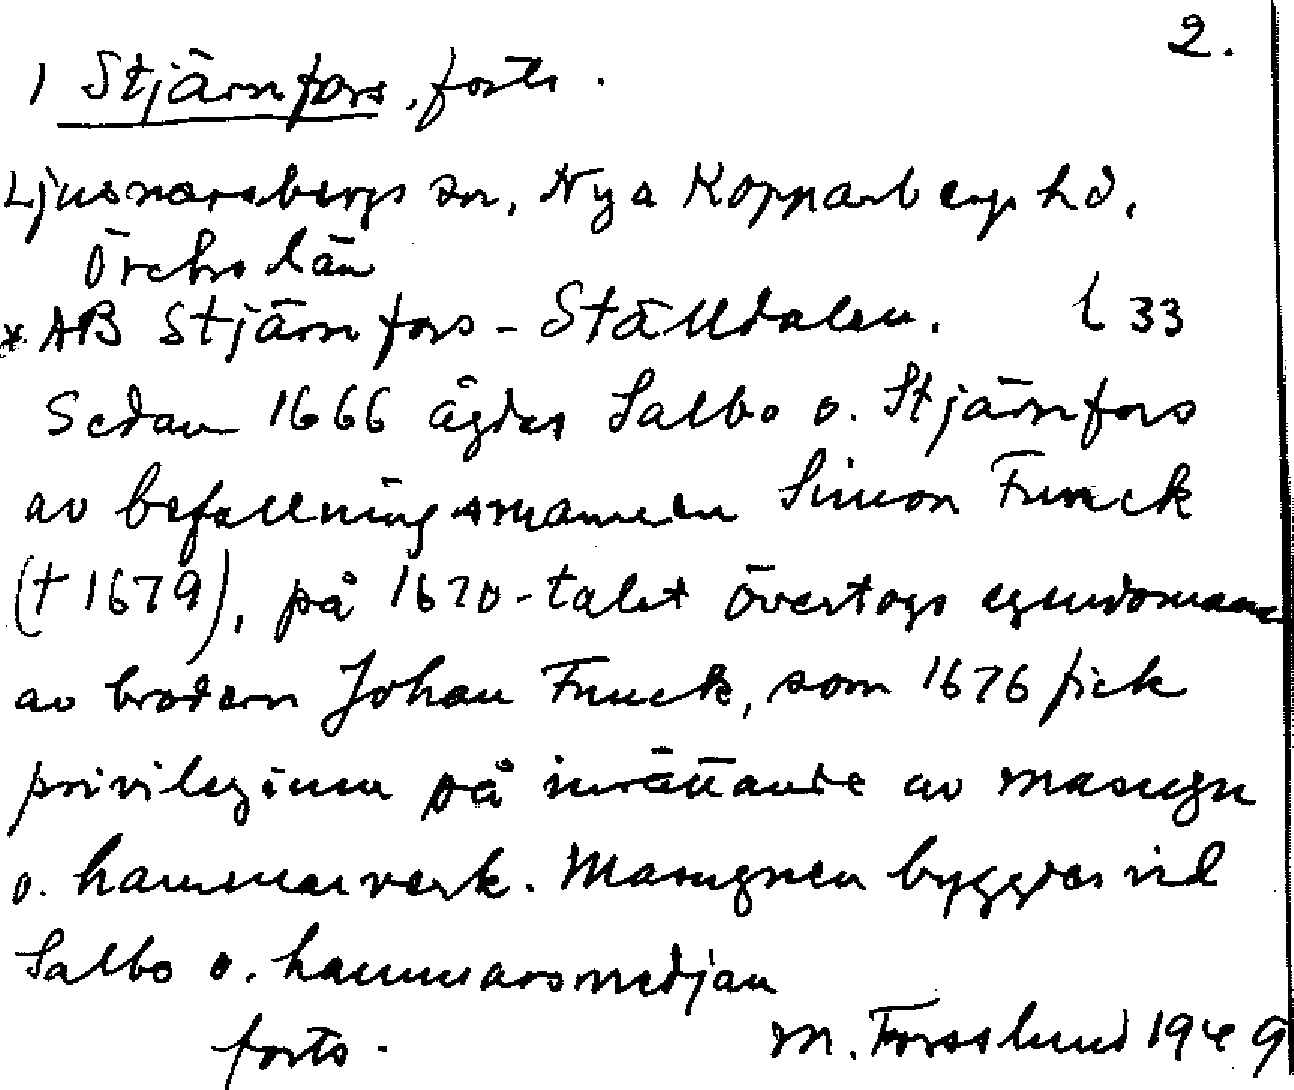 2.
1 Stjärnfors, forts.
Ljusnarsbergs sn, Nya Kopparbergs hd,
Örebro län
* AB Stjärnfors-Ställdalen. l 33
Sedan 1666 ägdes Salbo o. Stjärnfors
av befallningsmannen Simon Funck
(† 1679), på 1670-talet övertogs egendomarne
av brodern Johan Funck, som 1676 fick
privilegium på inrättande av masugn
o. hammarverk. Masugnen byggdes vid
Salbo o. hammarsmedjan
forts. M. Forsslund 1949